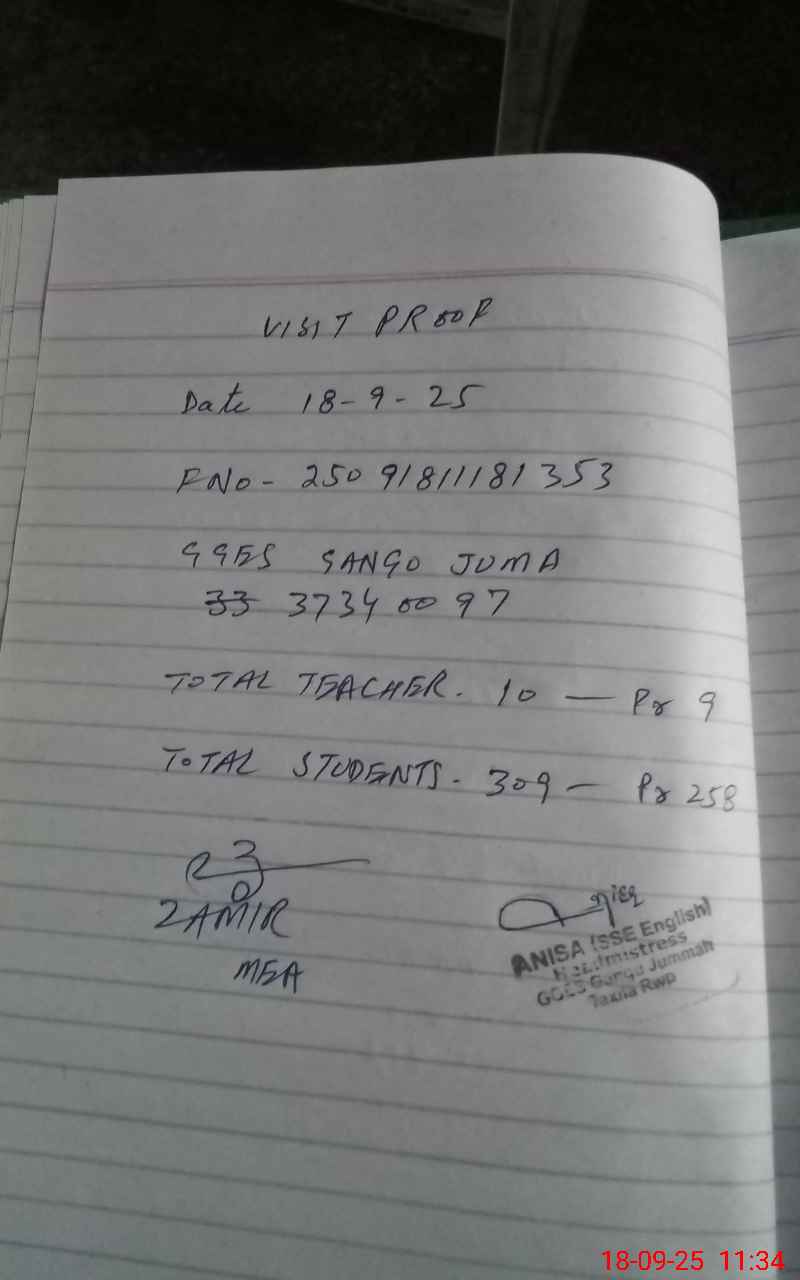 VISIT PROOF
Date 18-9-25
FNo- 25091811181353
GGES GANGO JUMA
33 37340097
TOTAL TEACHER. 10 — Pr 9
TOTAL STUDENTS. 309 — Pr 258
ZAMIR
MEA
ANISA (SSE English)
Headmistress
GGES Gangu Jummah
Taxila Rwp
18-09-25 11:34